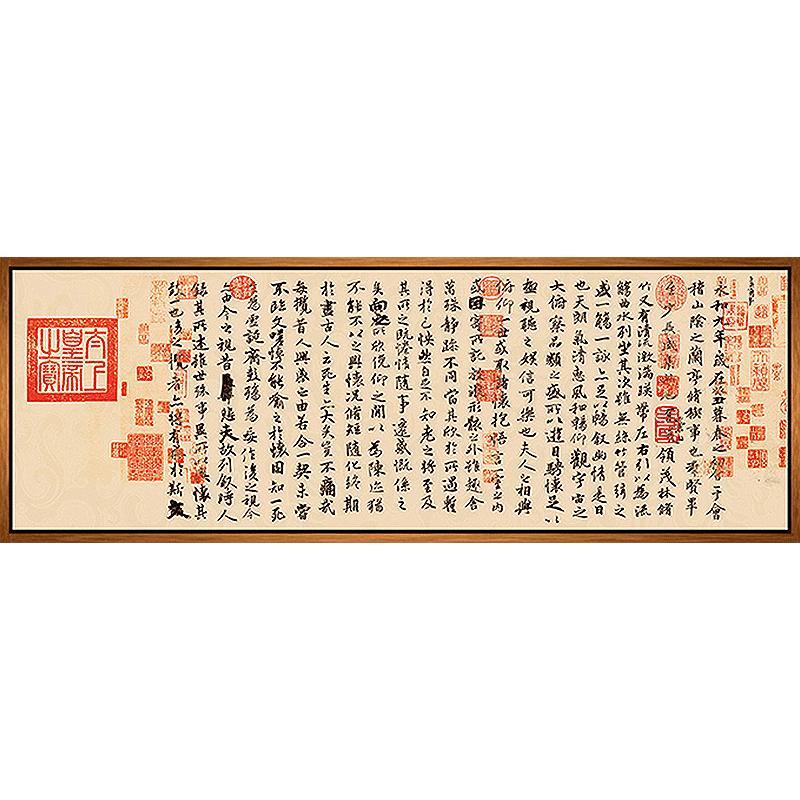 永和九年歲在癸丑暮春之初會于會
稽山陰之蘭亭脩稧事也羣賢畢
至少長咸集此領茂林脩
竹又有清流激湍暎帶左右引以為流
觴曲水列坐其次雖無絲竹管弦之
盛一觴一詠亦足以暢敘幽情是日
也天朗氣清惠風和暢仰觀宇宙之
大俯察品類之盛所以遊目騁懷足以
極視聽之娛信可樂也夫人之相與
俯仰一世或取諸懷抱悟言一室之內
或因寄所託放浪形骸之外雖趣舍
萬殊靜躁不同當其欣於所遇暫
得於己怏然自足不知老之將至及
其所之既惓情隨事遷感慨係之
矣向之所欣俛仰之間以為陳迹猶
不能不以之興懷況脩短隨化終期
於盡古人云死生亦大矣豈不痛哉
每攬昔人興感之由若合一契未嘗
不臨文嗟悼不能喻之於懷固知一死
生為虛誕齊彭殤為妄作後之視今
亦由今之視昔悲夫故列敘時人
錄其所述雖世殊事異所以興懷其
致一也後之攬者亦將有感於斯文
太上
皇帝
之寶